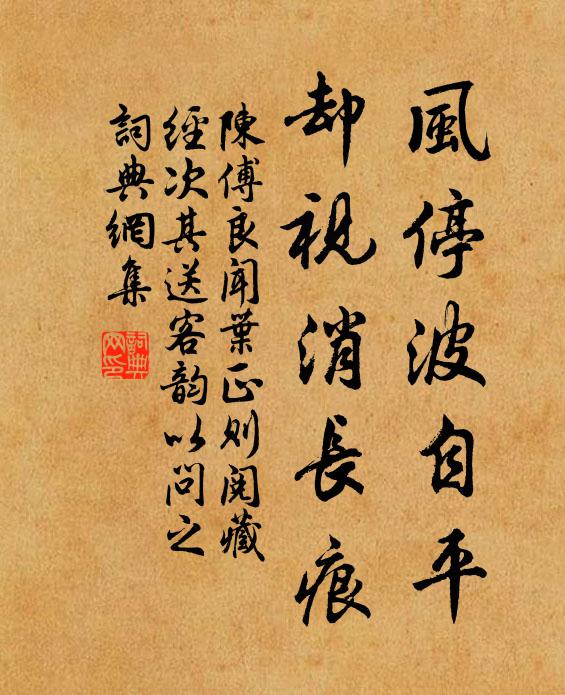 風停波自平
却視消長痕
陳傅良聞葉正則閱藏
經次其送客韵以問之
詞典網集
詞典
网印